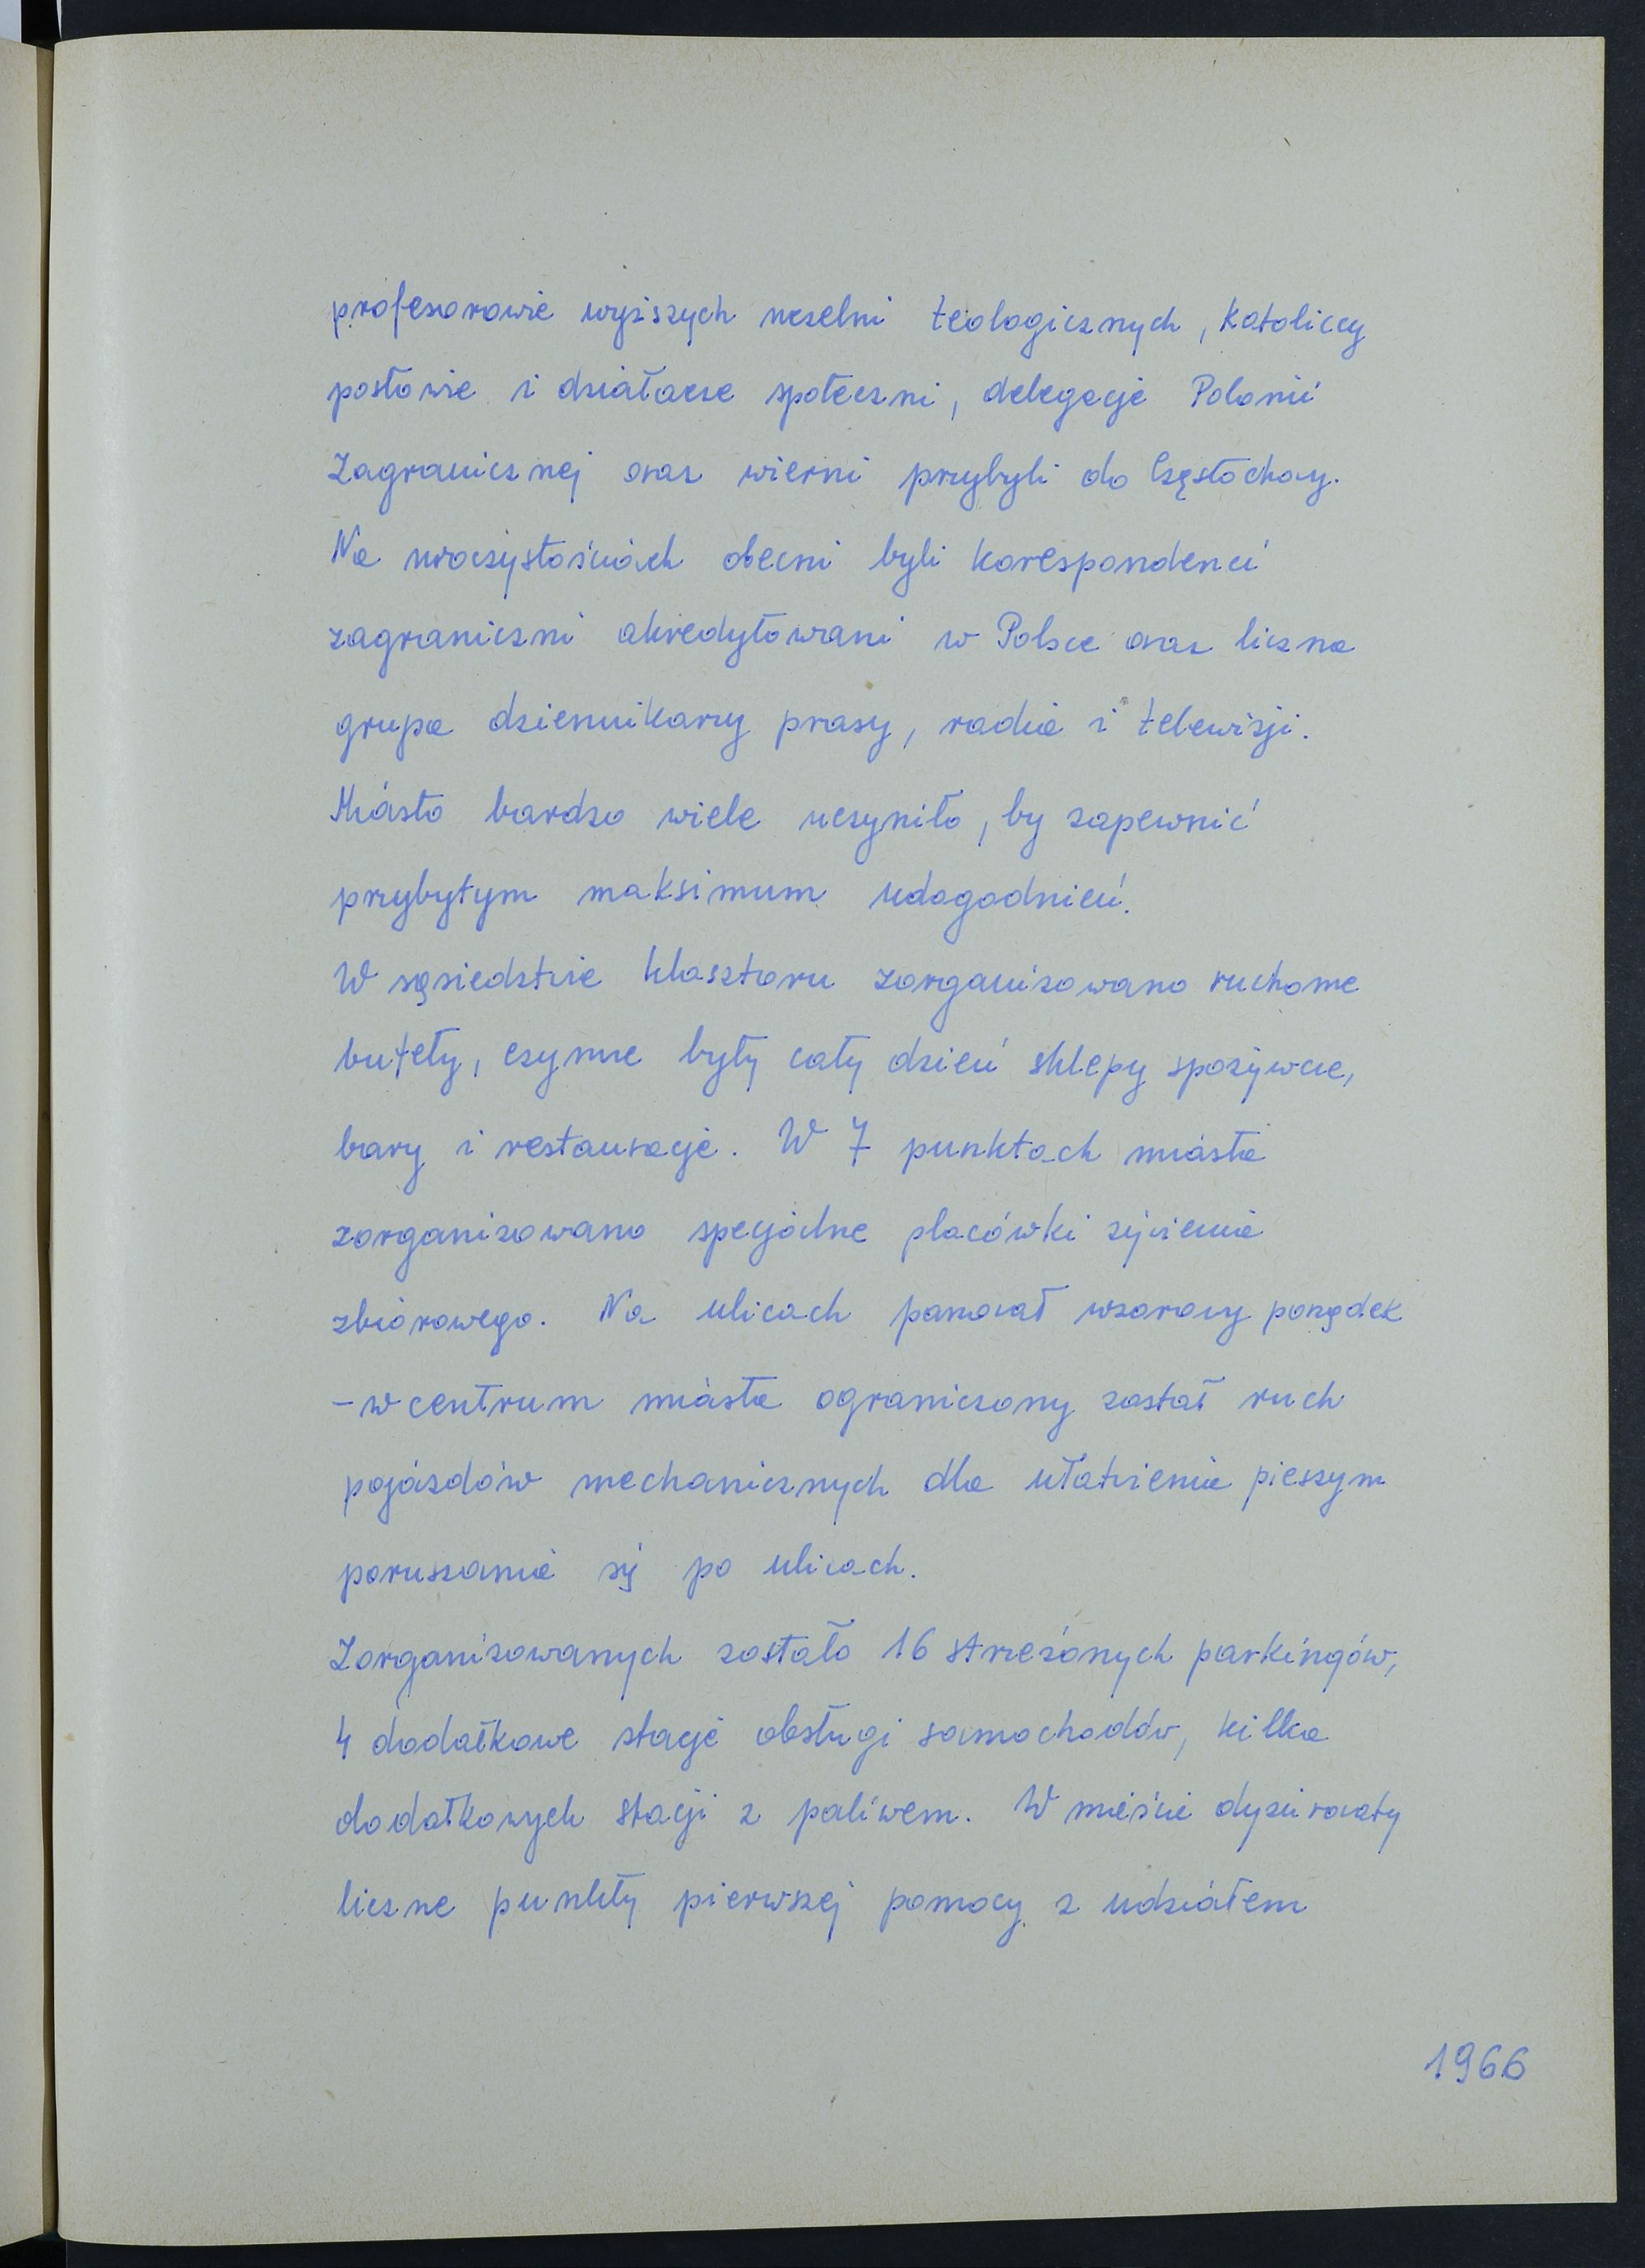 profesorowie wyższych uczelni teologicznych, katoliccy
posłowie i działacze społeczni, delegacje Polonii
Zagranicznej oraz wierni przybyli do Częstochowy.
Na uroczystościach obecni byli korespondenci
zagraniczni akredytowani w Polsce oraz liczna
grupa dziennikarzy prasy, radia i telewizji.
Miasto bardzo wiele uczyniło, by zapewnić
przybyłym maksimum udogodnień.
W sąsiedztwie klasztoru zorganizowano ruchome
bufety, czynne były cały dzień sklepy spożywcze,
bary i restauracje. W 7 punktach miasta
zorganizowano specjalne placówki żywienia
zbiorowego. Na ulicach panował wzorowy porządek
- w centrum miasta ograniczony został ruch
pojazdów mechanicznych dla ułatwienia pieszym
poruszania się po ulicach.
Zorganizowanych zostało 16 strzeżonych parkingów,
4 dodatkowe stacje obsługi samochodów, kilka
dodatkowych stacji z paliwem. W mieście dyżurowały
liczne punkty pierwszej pomocy z udziałem
1966